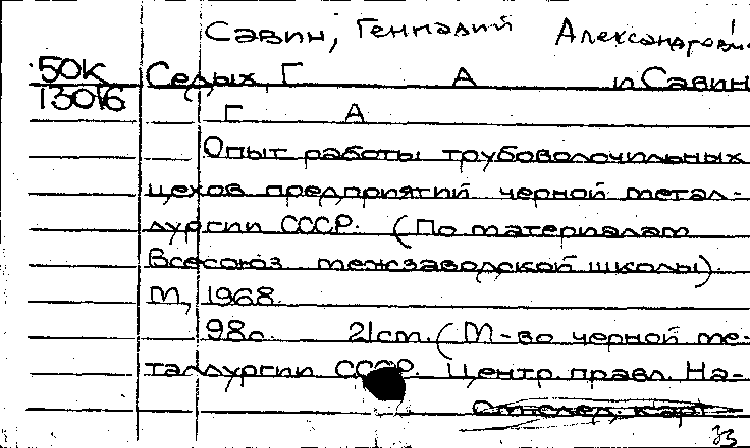 Савин, Геннадий Александрович
50К Седых, Г А и Савин
13016 Г А
Опыт работы трубоволочильных
цехов предприятий черной метал-
лургии СССР. (По материалам
Всесоюз межзаводской школы).
М, 1968.
98с. 21cm. (М-во черной ме-
таллургии СССР. Центр правл. На-
См след. карт
33